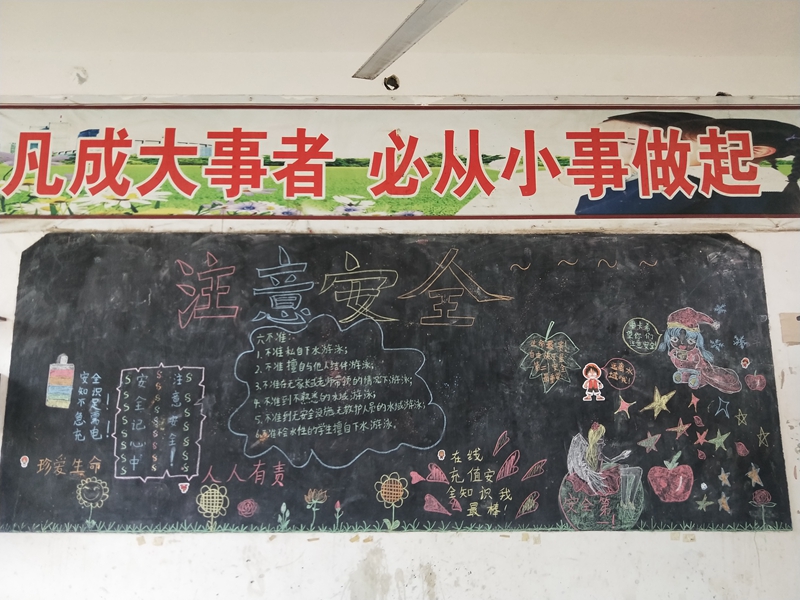 凡成大事者 必从小事做起
注意安全
六不准:
1.不准私自下水游泳;
2.不准擅自与他人结伴游泳;
3.不准在无家长或老师带领的情况下游泳;
4.不准到不熟悉的水域游泳;
5.不准到无安全设施、无救护人员的水域游泳;
6.不准不会水性的学生擅自下水游泳。
注意安全
安全记心中
珍爱生命
人人有责
在线
充值安
全知识我
最棒!
安全第一